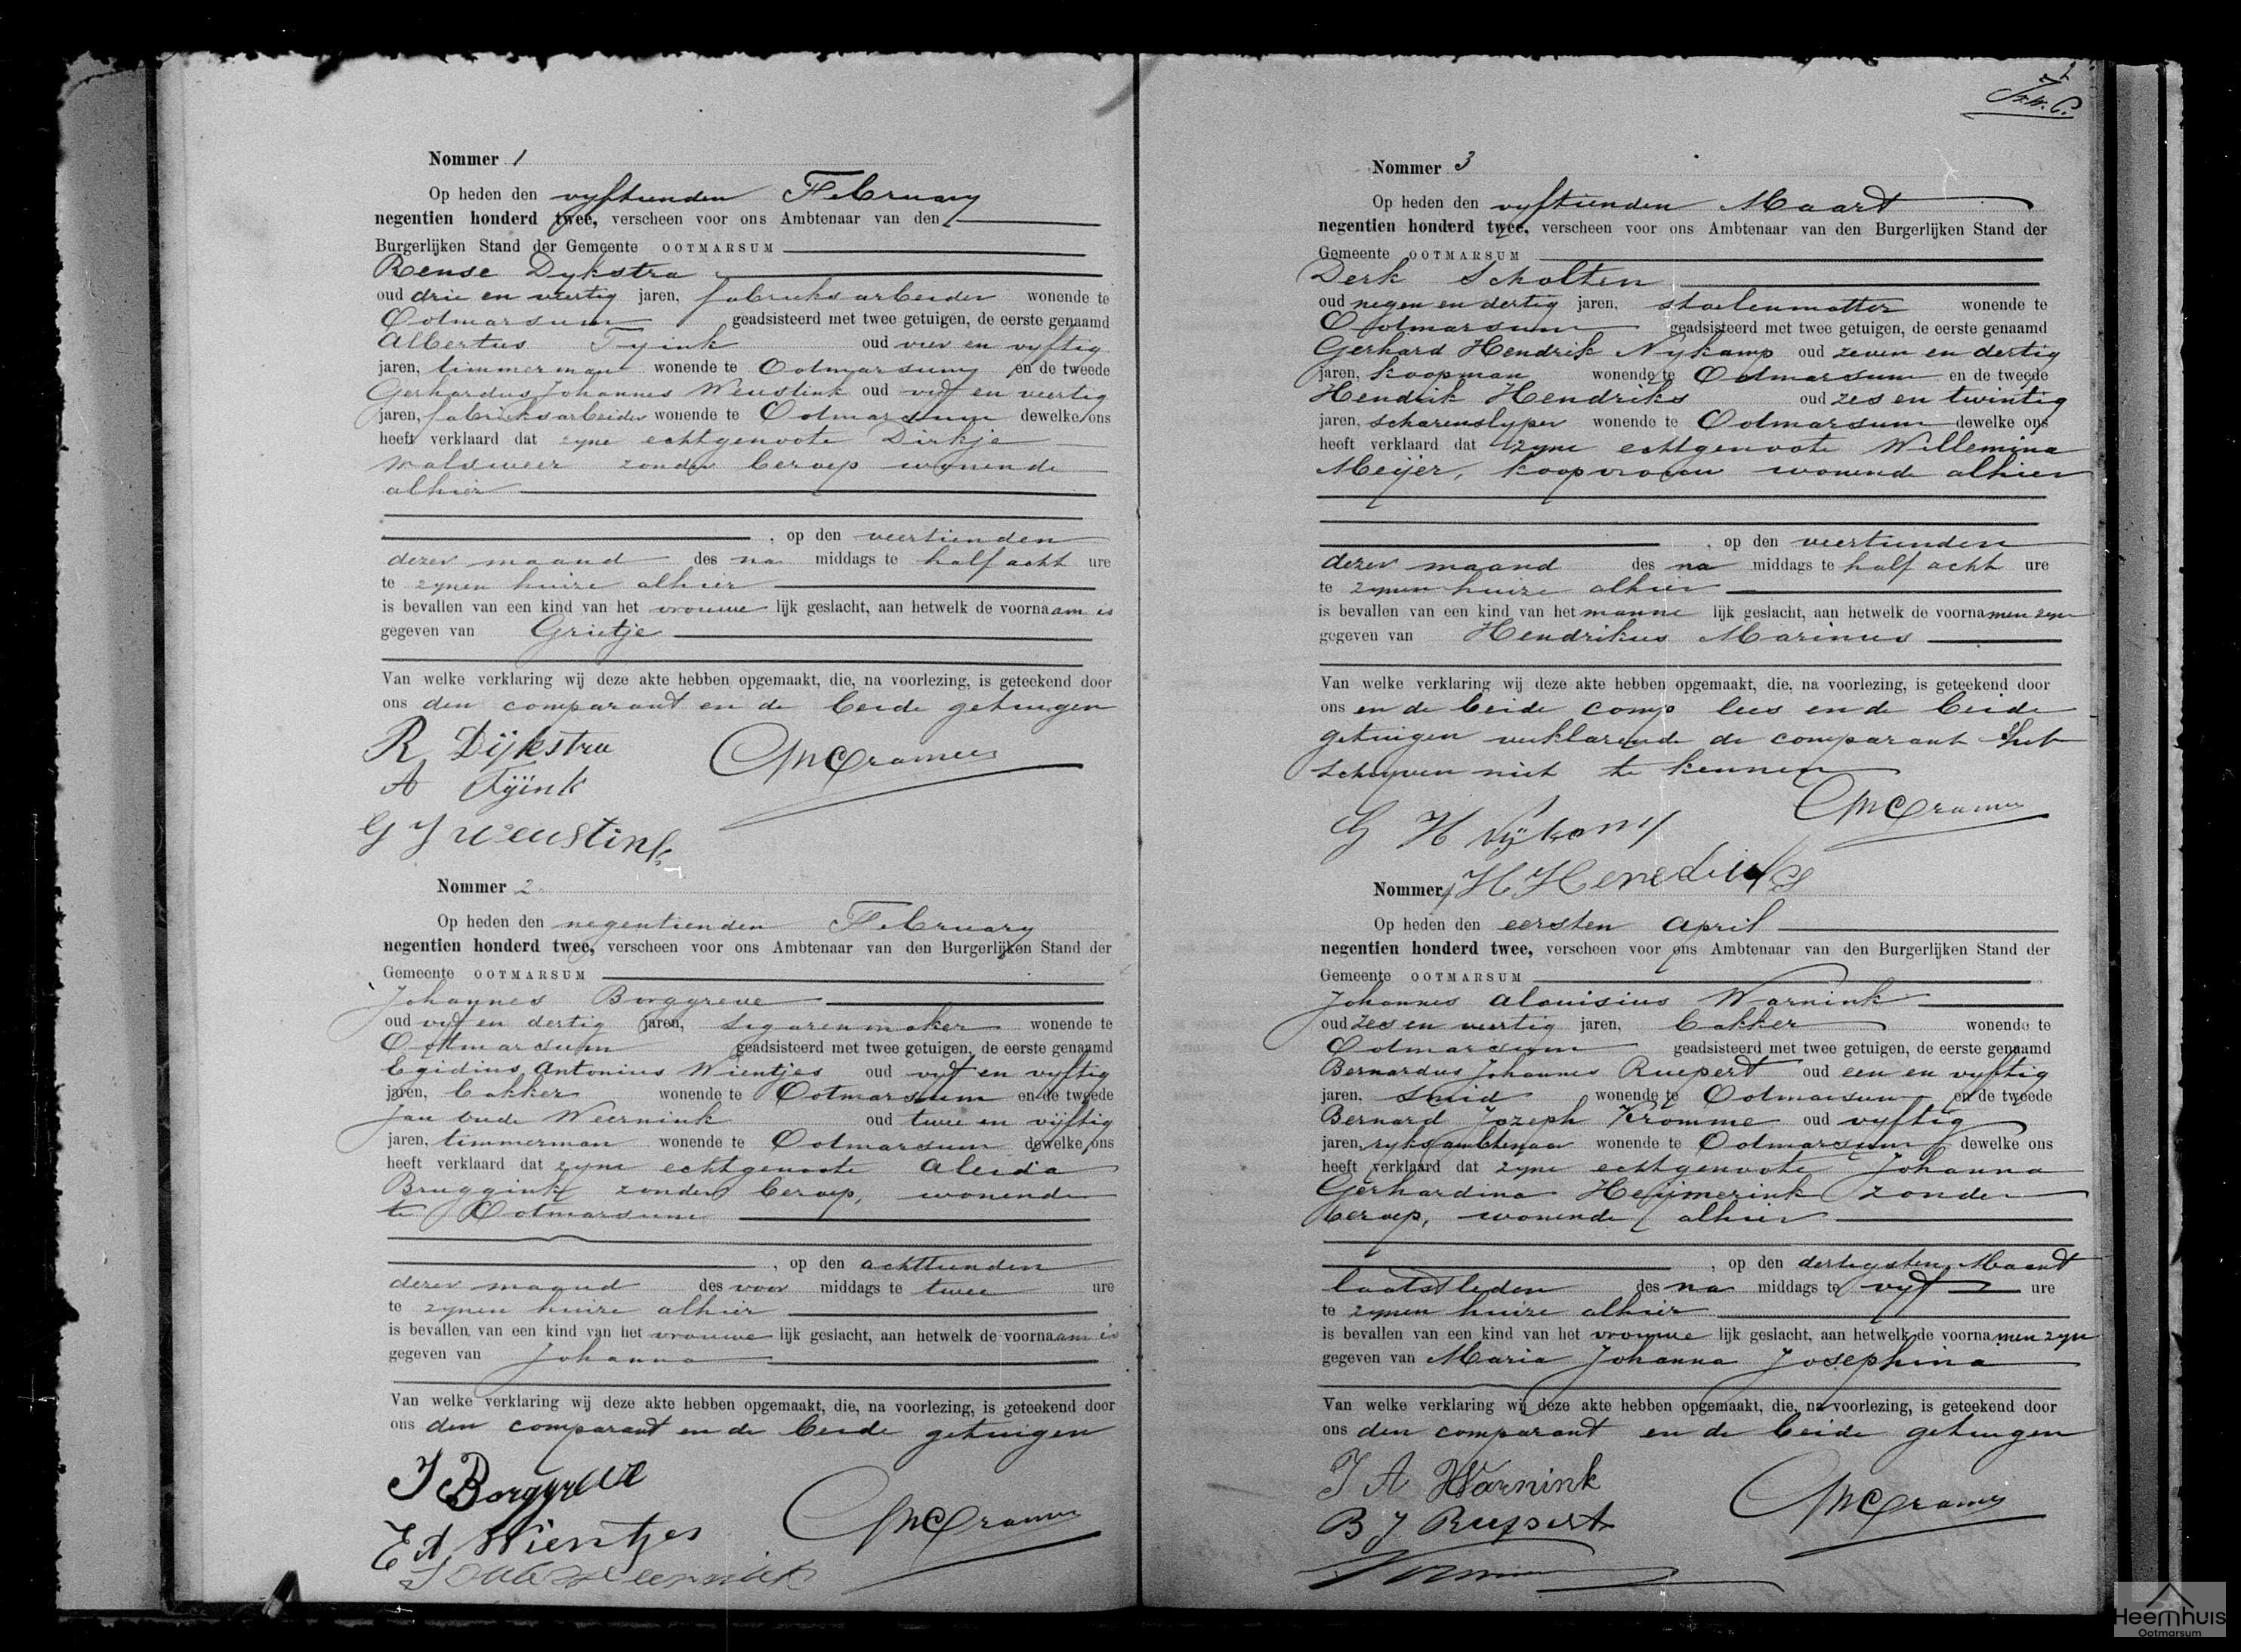 Nommer 1
Op heden den vyftienden February
negentien honderd twee, verscheen voor ons Ambtenaar van den
Burgerlijken Stand der Gemeente OOTMARSUM
Rense Dykstra
oud drie en veertig jaren, fabrieksarbeider wonende te
Ootmarsum geadsisteerd met twee getuigen, de eerste genaamd
Albertus Tyink oud vier en vyftig
jaren, timmerman wonende te Ootmarsum en de tweede
Gerhardus Johannes Weustink oud vyf en veertig
jaren, fabrieksarbeider wonende te Ootmarsum dewelke ons
heeft verklaard dat zyne echtgenoote Dirkje
zonder beroep wonende
alhier
, op den veertienden
dezer maand des na middags te half acht ure
te zynen huize alhier
is bevallen van een kind van het vrouwe lijk geslacht, aan hetwelk de voornaam is
gegeven van Grietje
Van welke verklaring wij deze akte hebben opgemaakt, die, na voorlezing, is geteekend door
ons den comparant en de beide getuigen
R Dijkstra
Cramer
A Tijink
G J Weustink
Nommer 2
Op heden den negentienden February
negentien honderd twee, verscheen voor ons Ambtenaar van den Burgerlijken Stand der
Gemeente OOTMARSUM
Johannes Borggreve
oud vyf en dertig jaren, sigarenmaker wonende te
Ootmarsum geadsisteerd met twee getuigen, de eerste genaamd
Egidius Antonius Wientjes oud vyf en vyftig
jaren, bakker wonende te Ootmarsum en de tweede
Jan oude Weernink oud twee en vijftig
jaren, timmerman wonende te Ootmarsum dewelke ons
heeft verklaard dat zyne echtgenoote Aleida
Bruggink zonder beroep, wonende
te Ootmarsum
, op den achttienden
dezer maand des voor middags te twee ure
te zynen huize alhier
is bevallen van een kind van het vrouwe lijk geslacht, aan hetwelk de voornaam is
gegeven van Johanna
Van welke verklaring wij deze akte hebben opgemaakt, die, na voorlezing, is geteekend door
ons den comparant en de beide getuigen
J Borggreve
Cramer
E A Wientjes
J oude Weernink
Nommer 3
Op heden den vyftienden Maart
negentien honderd twee, verscheen voor ons Ambtenaar van den Burgerlijken Stand der
Gemeente OOTMARSUM
Derk Scholten
oud negen en dertig jaren, stoelenmatter wonende te
Ootmarsum geadsisteerd met twee getuigen, de eerste genaamd
Gerhard Hendrik Nykamp oud zeven en dertig
jaren, koopman wonende te Ootmarsum en de tweede
Hendrik Hendriks oud zes en twintig
jaren, scharenslyper wonende te Ootmarsum dewelke ons
heeft verklaard dat zyne echtgenoote Willemina
Meijer, koopvrouw wonende alhier
, op den veertienden
dezer maand des na middags te half acht ure
te zynen huize alhier
is bevallen van een kind van het manne lijk geslacht, aan hetwelk de voornamen zyn
gegeven van Hendrikus Marinus
Van welke verklaring wij deze akte hebben opgemaakt, die, na voorlezing, is geteekend door
ons en de beide en de beide
getuigen verklarende de comparant
schryven niet te kennen
Cramer
G H Nijkamp
Nommer H Henedriks
Op heden den eersten April
negentien honderd twee, verscheen voor ons Ambtenaar van den Burgerlijken Stand der
Gemeente OOTMARSUM
Johannes Alouisius Warnink
oud zes en veertig jaren, bakker wonende te
Ootmarsum geadsisteerd met twee getuigen, de eerste genaamd
Bernardus Johannes Ruepert oud een en vyftig
jaren, Smid wonende te Ootmarsum en de tweede
Bernard Jozeph Kromme oud vyftig
jaren, ryksambtenaar wonende te Ootmarsum dewelke ons
heeft verklaard dat zyne echtgenoote Johanna
Gerhardina Heijmerink zonder
beroep, wonende alhier
, op den dertigsten Maart
laatstleden des na middags te vyf ure
te zynen huize alhier
is bevallen van een kind van het vrouwe lijk geslacht, aan hetwelk de voornamen zyn
gegeven van Maria Johanna Josephina
Van welke verklaring wij deze akte hebben opgemaakt, die, na voorlezing, is geteekend door
ons den comparant en de beide getuigen
J A Warnink
Cramer
B J Ruepert
Heemhuis
Ootmarsum